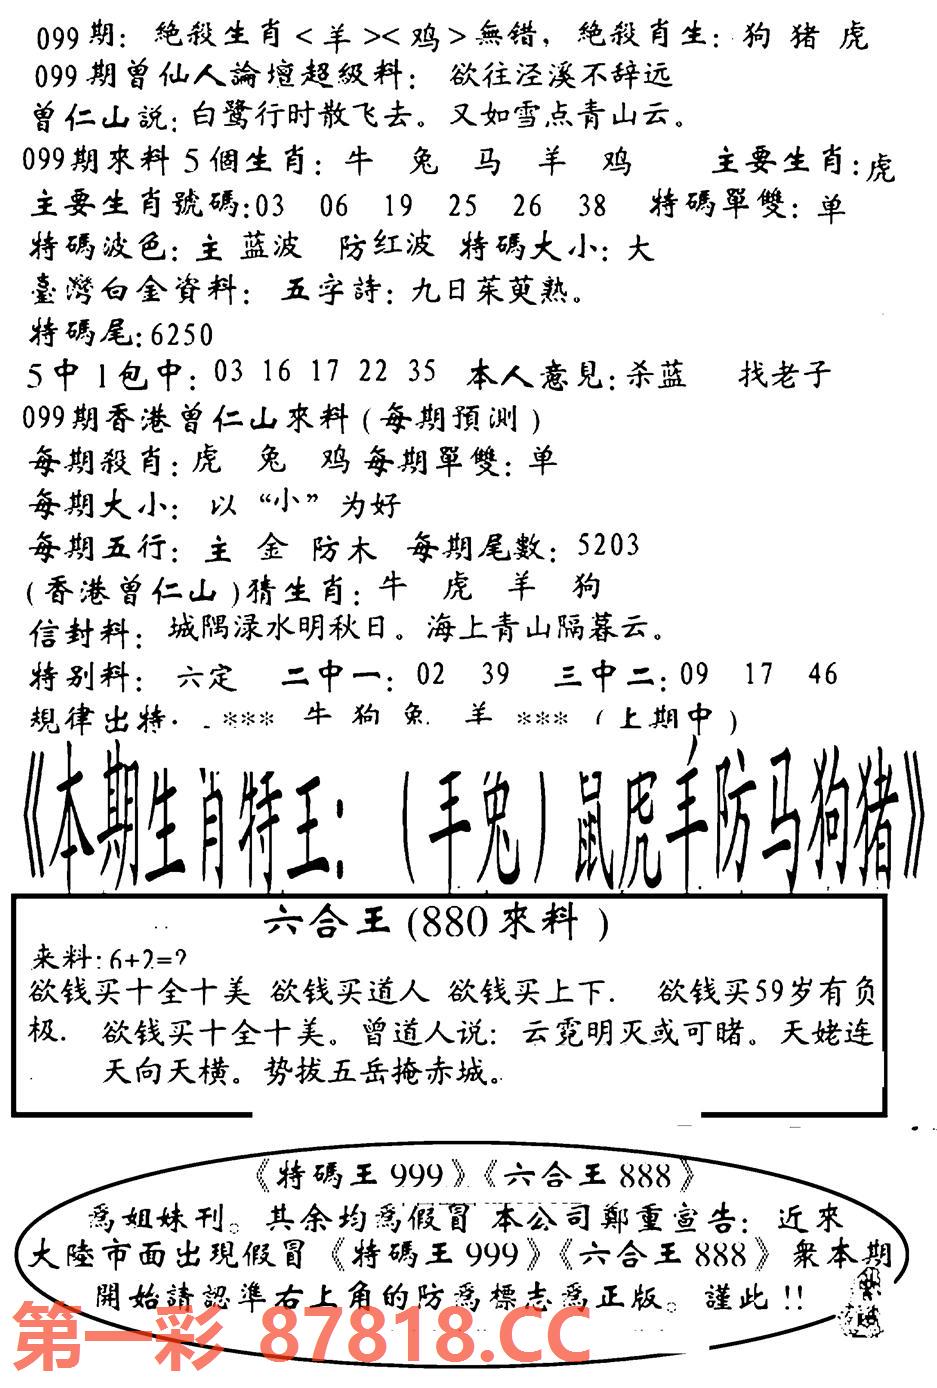 099期：絶殺生肖<羊><鸡>無错，絶殺肖生：狗 猪 虎
099期曾仙人論壇超級料：欲往泾溪不辞远
曾仁山説：白鹭行时散飞去。又如雪点青山云。
099期來料5個生肖：牛 兔 马 羊 鸡 主要生肖：虎
主要生肖號碼：03 06 19 25 26 38 特碼單雙：单
特碼波色：主 蓝波 防红波 特碼大小：大
臺灣白金資料：五字詩：九日茱萸熟。
特碼尾：6250
5中1包中：03 16 17 22 35 本人意見：杀蓝 找老子
099期香港曾仁山來料(每期預測)
每期殺肖：虎 兔 鸡 每期單雙：单
每期大小：以“小”为好
每期五行：主 金 防木 每期尾數：5203
(香港曾仁山)猜生肖：牛 虎 羊 狗
信封料：城隅渌水明秋日。海上青山隔暮云。
特别料：六定 二中一：02 39 三中二：09 17 46
規律出特. *** 牛 狗 兔 羊 *** (上期中)
《本期生肖特王：（羊兔）鼠虎羊防马狗猪》
六合王(880來料)
来料：6+2=?
欲钱买十全十美 欲钱买道人 欲钱买上下. 欲钱买59岁有负
极. 欲钱买十全十美。曾道人说：云霓明灭或可睹。天姥连
天向天横。势拔五岳掩赤城。
《特碼王999》《六合王888》
爲姐妹刊。其余均爲假冒 本公司鄭重宣告：近來
大陸市面出現假冒《特碼王999》《六合王888》衆本期
開始請認準右上角的防爲標志爲正版。謹此!!
第一彩 87818.CC